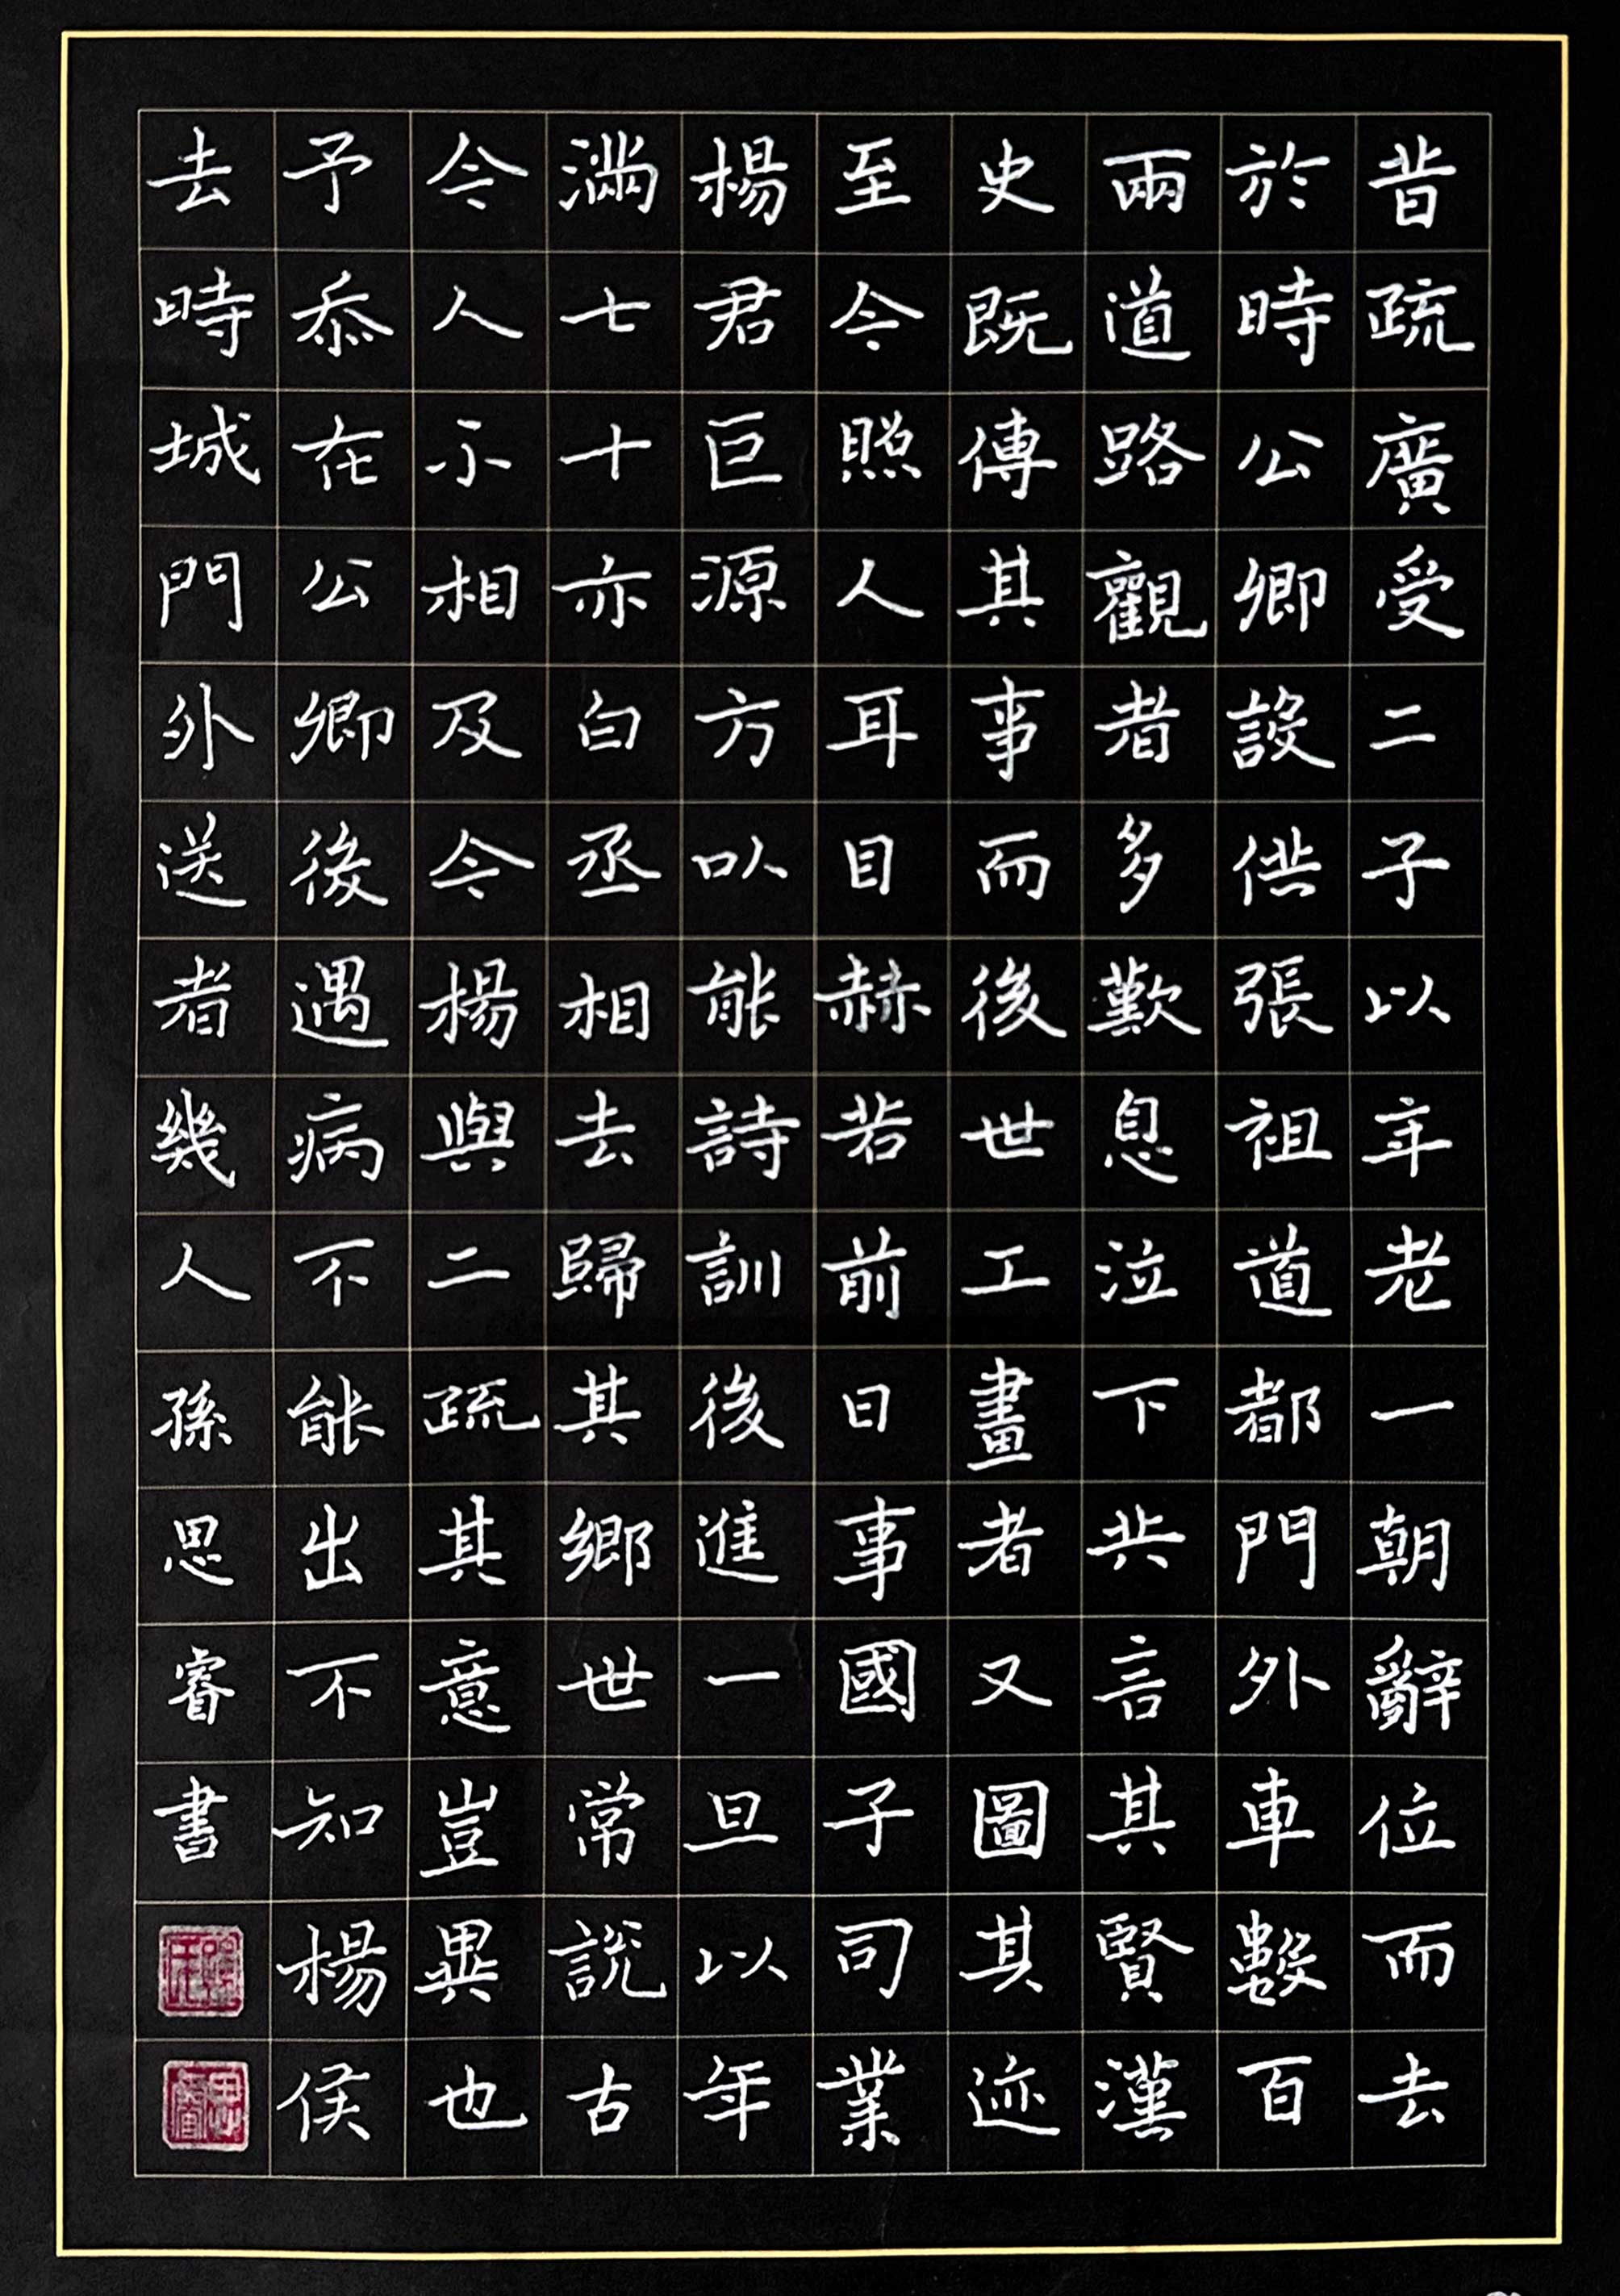 昔疏廣受二子以年老一朝辭位而去
於時公卿設供張祖道都門外車數百
兩道路觀者多歎息泣下共言其賢漢
史既傳其事而後世工畫者又圖其迹
至今照人耳目赫若前日事國子司業
楊君巨源方以能詩訓後進一旦以年
滿七十亦白丞相去歸其鄉世常說古
今人不相及今楊與二疏其意豈異也
予忝在公卿後遇病不能出不知楊侯
去時城門外送者幾人孫思睿書
思睿